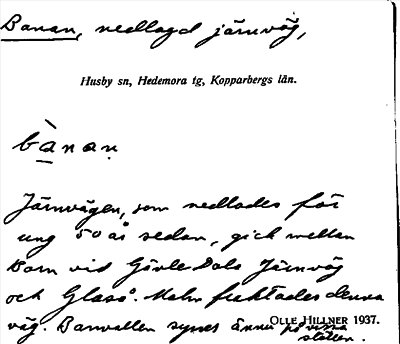 Banan, nedlagd järnväg,
Husby sn, Hedemora tg, Kopparbergs län.
bànan
Järnvägen, som nedlades för
ung 50 år sedan, gick mellan
Born vid Gävle Dala Järnväg
och Glasö. Malm fraktades denna
väg. Banvallen synes ännu på vissa
ställen.
OLLE HILLNER 1937.